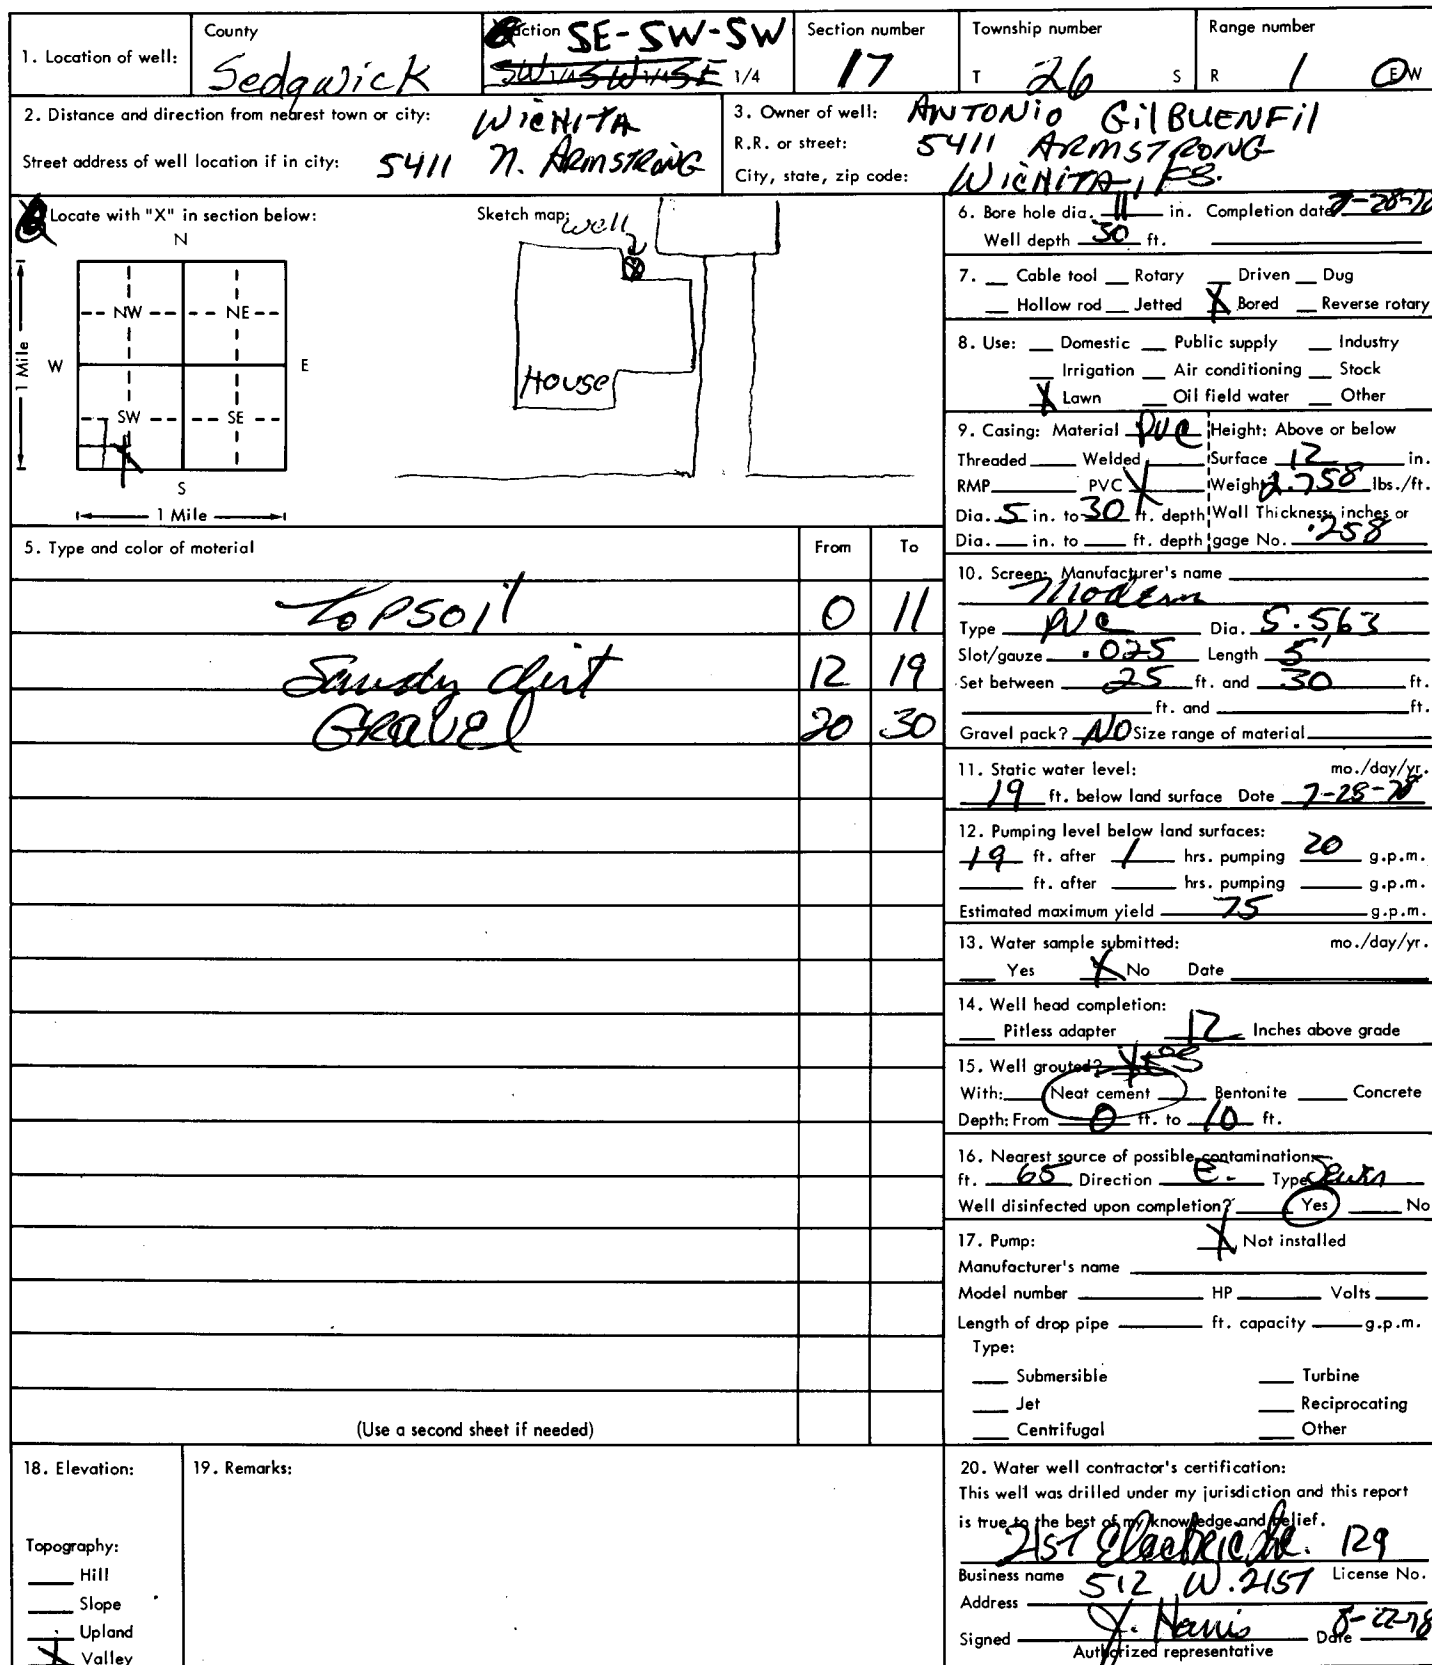 1. Location of well: County Sedgwick Fraction SE-SW-SW SW 1/4 SW 1/4 SE 1/4 Section number 17 Township number T 26 S Range number R 1 E W
2. Distance and direction from nearest town or city: WICHITA
Street address of well location if in city: 5411 N. ARMSTRONG
3. Owner of well: ANTONIO GilBUENFil
R.R. or street: 5411 ARMSTRONG
City, state, zip code: WICHITA, KS.
Locate with "X" in section below:
N
NW NE
W E
SW SE
S
1 Mile
1 Mile
Sketch map:
well
House
6. Bore hole dia. 11 in. Completion date 7-28-78
Well depth 30 ft.
7. Cable tool Rotary Driven Dug
Hollow rod Jetted X Bored Reverse rotary
8. Use: Domestic Public supply Industry
Irrigation Air conditioning Stock
X Lawn Oil field water Other
9. Casing: Material PVC Height: Above or below
Threaded Welded Surface 12 in.
RMP PVC X Weight 2.758 lbs./ft.
Dia. 5 in. to 30 ft. depth Wall Thickness: inches or
Dia. in. to ft. depth gage No. .258
5. Type and color of material From To
Topsoil 0 11
Sandy dirt 12 19
GRAVEl 20 30
(Use a second sheet if needed)
10. Screen: Manufacturer's name
Modern
Type PVC Dia. 5.563
Slot/gauze .025 Length 5'
Set between 25 ft. and 30 ft.
ft. and ft.
Gravel pack? NO Size range of material
11. Static water level: mo./day/yr.
19 ft. below land surface Date 7-28-78
12. Pumping level below land surfaces:
19 ft. after 1 hrs. pumping 20 g.p.m.
ft. after hrs. pumping g.p.m.
Estimated maximum yield 75 g.p.m.
13. Water sample submitted: mo./day/yr.
Yes X No Date
14. Well head completion:
Pitless adapter 12 Inches above grade
15. Well grouted? YES
With: Neat cement Bentonite Concrete
Depth: From 0 ft. to 10 ft.
16. Nearest source of possible contamination:
ft. 65 Direction E. Type Sewer
Well disinfected upon completion? Yes No
17. Pump: X Not installed
Manufacturer's name
Model number HP Volts
Length of drop pipe ft. capacity g.p.m.
Type:
Submersible Turbine
Jet Reciprocating
Centrifugal Other
18. Elevation:
Topography:
Hill
Slope
Upland
X Valley
19. Remarks:
20. Water well contractor's certification:
This well was drilled under my jurisdiction and this report
is true to the best of my knowledge and belief.
21ST Electric 129
Business name License No.
Address 512 W. 21ST
Signed J. Harris Date 8-22-78
Authorized representative